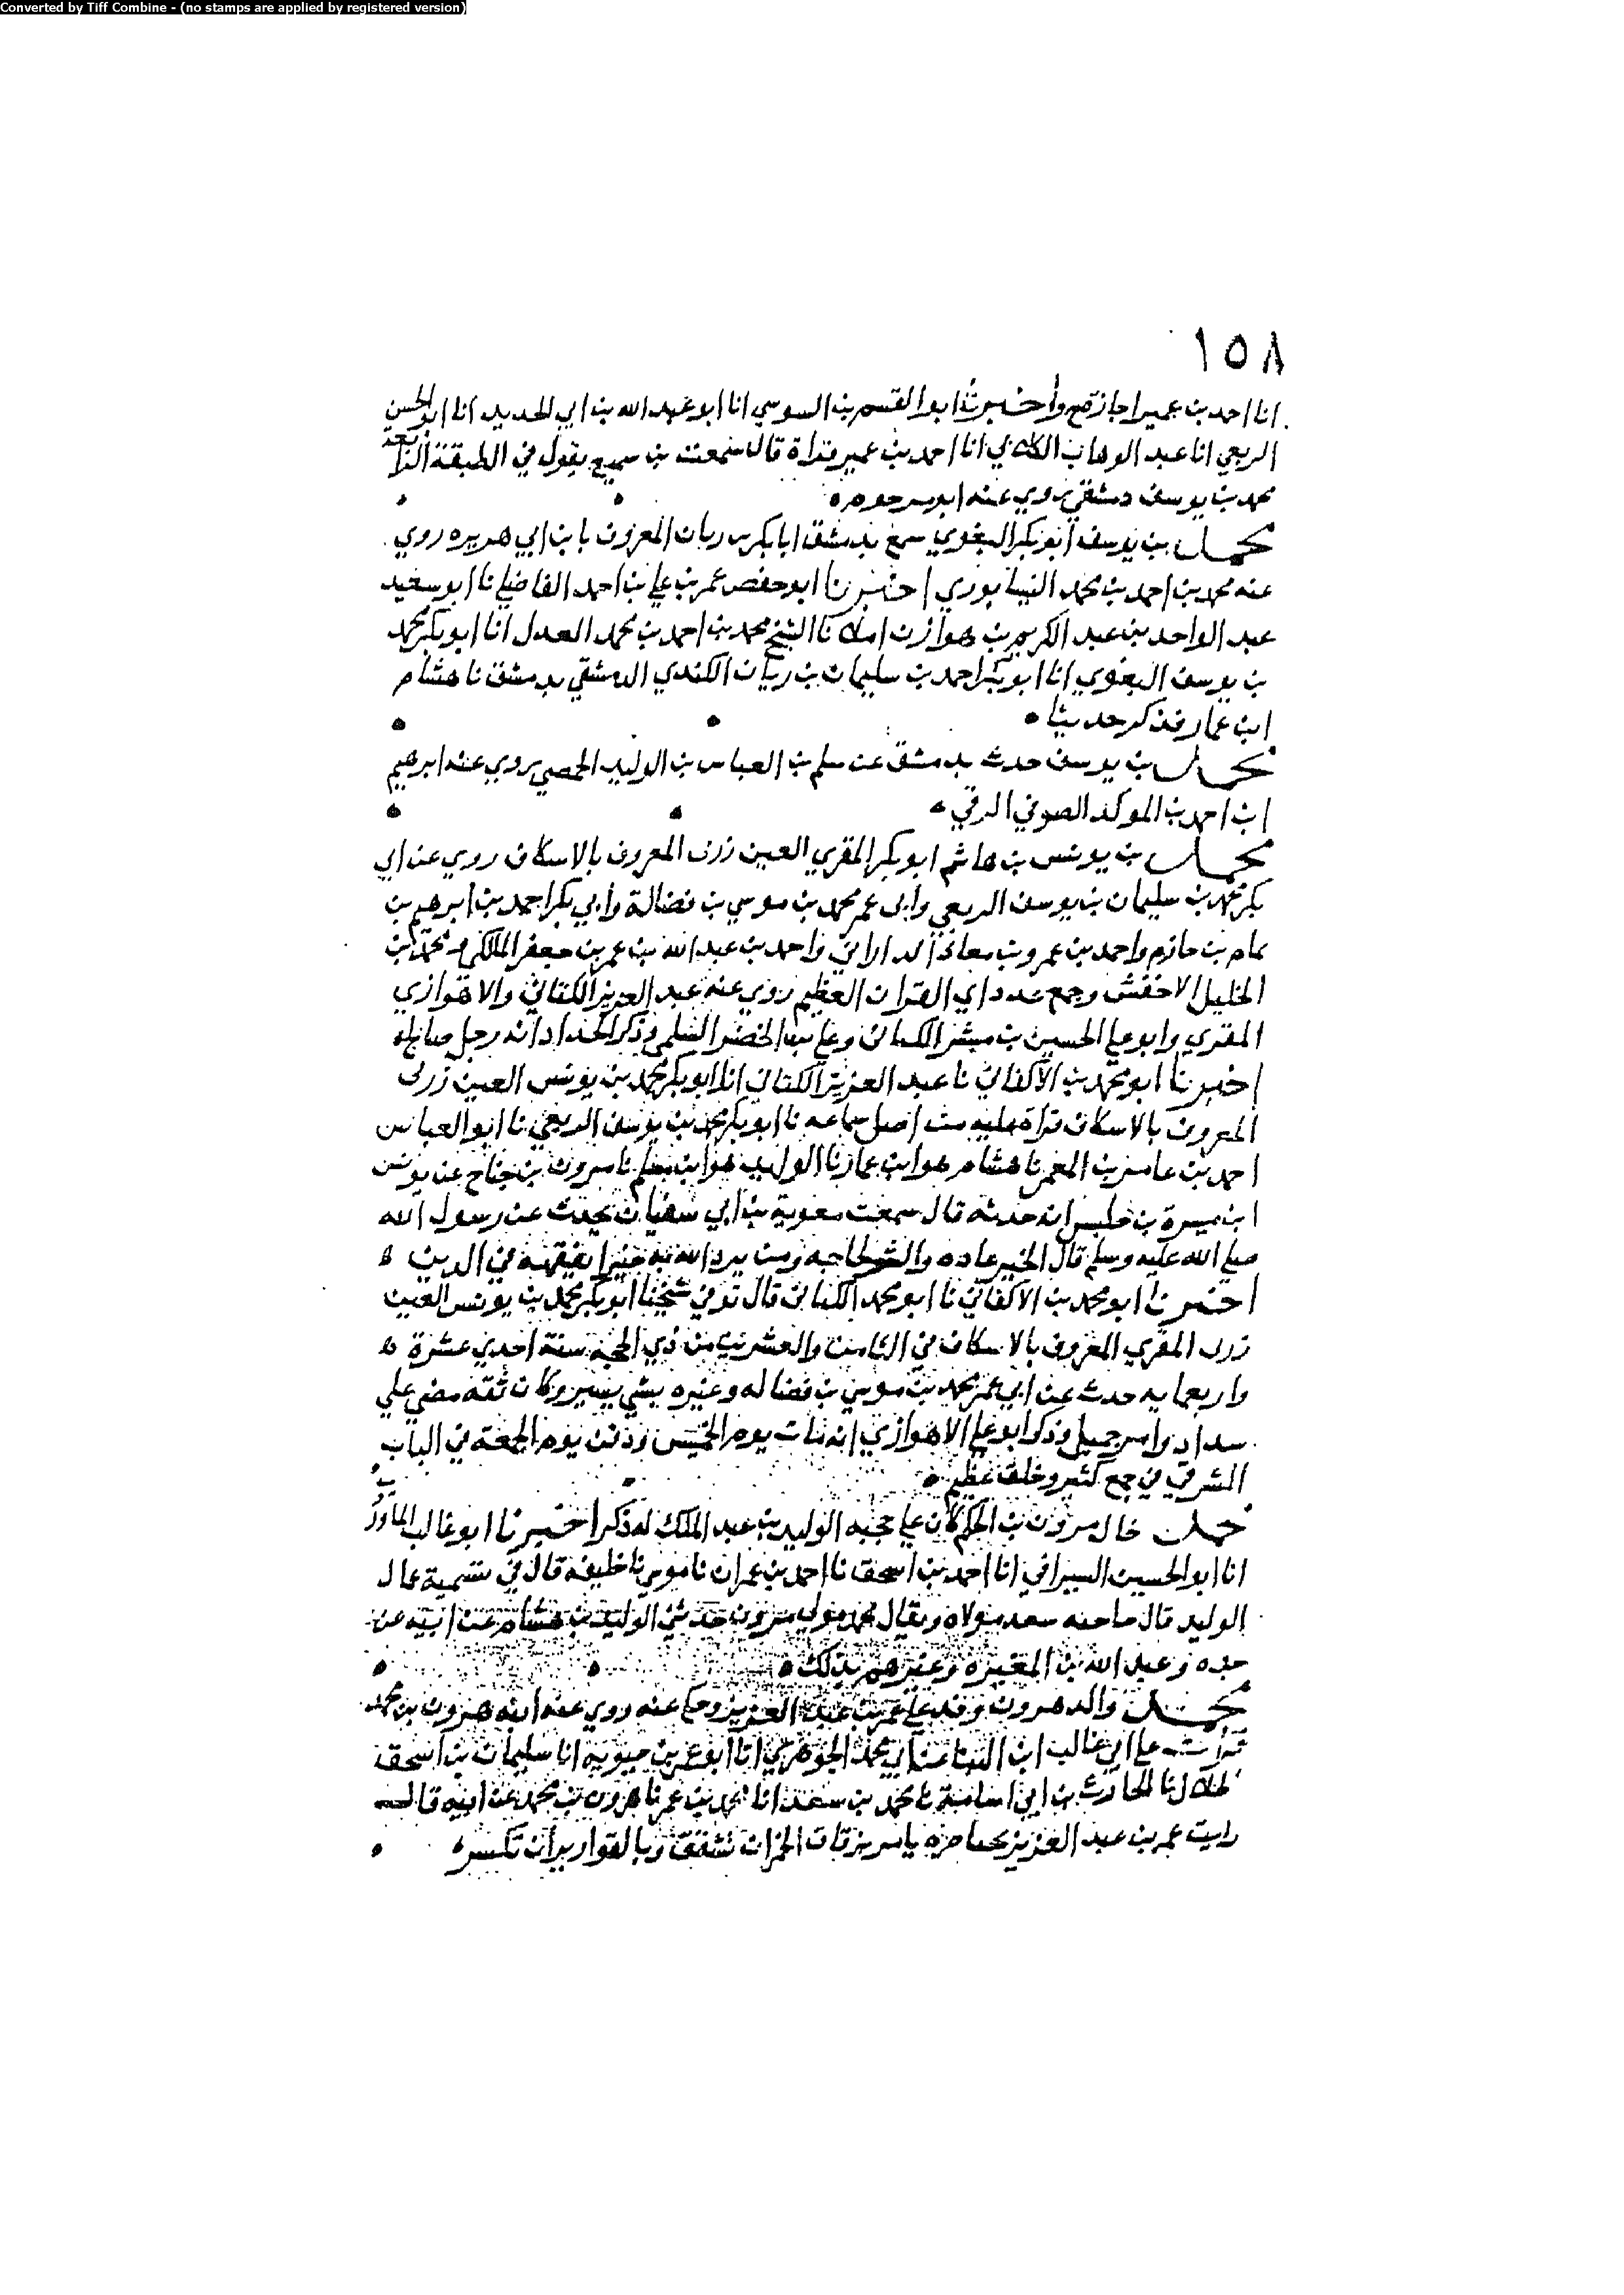 Converted by Tiff Combine - (no stamps are applied by registered version)
١٥٨
انا احمد بن عمير اجازة ح واخبرنا ابو القسم بن السوسي انا ابو عبد الله بن ابي الحديد انا ابو الحسن
الربعي انا عبد الوهاب الكلابي انا احمد بن عمير قراة قال سمعت بن سميع يقول في الطبقة الرابعة
محمد بن يوسف دمشقي روي عنه ابو
محمد بن يوسف ابو بكر البغوي سمع بدمشق ابا بكر بن ريان المعروف بابن ابي هريره روي
عنه محمد بن احمد بن محمد النيسابوري اخبرنا ابو حفص عمر بن علي بن احمد الفاضلي نا ابو سعيد
عبد الواحد بن عبد الكريم بن هوازن املا نا الشيخ محمد بن احمد بن محمد العدل انا ابو بكر محمد
بن يوسف البغوي انا ابو بكر احمد بن سليمان بن ريان الكندي الدمشقي بدمشق نا هشام
ابن عمار فذكر حديثا
محمد بن يوسف حدث بدمشق عن سلم بن العباس بن الوليد الحمصي روي عنه ابرهيم
ابن احمد بن المولد الصوفي الرقي
محمد بن يونس بن هاشم ابو بكر المقري العين زربي المعروف بالاسكاف روي عن ابي
بكر محمد بن سليمان بن يوسف الربعي وابي عمر محمد بن موسي بن فضالة وابي بكر احمد بن ابرهيم بن
تمام بن حازم واحمد بن عمرو بن معاذ الداراني واحمد بن عبد الله بن عمر بن جعفر المالكي ومحمد بن
الخليل الاخفش وجمع عدد اي القران العظيم روي عنه عبد العزيز الكتاني والاهوازي
المقري وابو علي الحسين بن مبشر الكتاني وعلي بن الخضر السلمي وذكر الحداد انه رجل صالح
اخبرنا ابو محمد بن الاكفاني نا عبد العزيز الكتاني انا ابو بكر محمد بن يونس العين زربي
المعروف بالاسكاف قراة عليه من اصل سماعه نا ابو بكر محمد بن يوسف الربعي نا ابو العباس
احمد بن عامر بن المعمر نا هشام هو ابن عمار نا الوليد هو ابن مسلم نا مروان بن جناح عن يونس
ابن ميسرة بن حلبس انه حدثه قال سمعت معوية بن ابي سفيان يحدث عن رسول الله
صلي الله عليه وسلم قال الخير عاده والشر لجاجه ومن يرد الله به خيرا يفقهه في الدين
اخبرنا ابو محمد بن الاكفاني نا ابو محمد الكتاني قال توفي شيخنا ابو بكر محمد بن يونس العين
زربي المقري المعروف بالاسكاف في الثامن والعشرين من ذي الحجة سنة احدي عشرة
واربعمايه حدث عن ابي عمر محمد بن موسي بن فضاله وغيره بشي يسير وكان ثقه مضي علي
سداد وامر جميل وذكر ابو علي الاهوازي انه مات يوم الخميس ودفن يوم الجمعة في الباب
الشرقي في جمع كثير وخلق عظيم
محمد خال مروان بن الحكم كان علي حجبه الوليد بن عبد الملك له ذكر اخبرنا ابو غالب الماوردي
انا ابو الحسين السيرافي انا احمد بن اسحق نا احمد بن عمران نا موسي نا خليفه قال في تسمية عمال
الوليد قال حاجبه سعد مولاه ويقال محمد مولي مروان حدثني الوليد بن هشام عن ابيه عن
جده وعبد الله بن المغيره وغيرهم بذلك
محمد والد هرون وفد علي عمر بن عبد العزيز وحكي عنه روي عنه ابنه هرون بن محمد
قرات علي ابي غالب ابن البنا عن ابي محمد الجوهري انا ابو عمر بن حيويه انا سليمان بن اسحق
الجلاب نا الحارث بن ابي اسامة نا محمد بن سعد انا محمد بن عمر نا هرون بن محمد عن ابيه قال
رايت عمر بن عبد العزيز بخناصره يامر بزقاق الخمر ان تشقق وبالقوارير ان تكسر